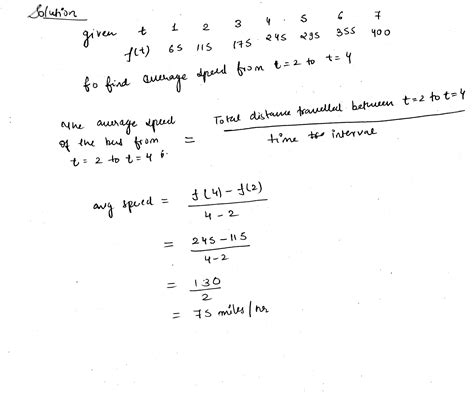 Solution
given t 1 2 3 4 5 6 7
f(t) 65 115 175 245 295 355 400
to find average speed from t=2 to t=4
The average speed of the bus from t=2 to t=4 is = Total distance travelled between t=2 to t=4 / time interval
avg speed = f(4)-f(2) / 4-2
= 245-115 / 4-2
= 130 / 2
= 75 miles/hr